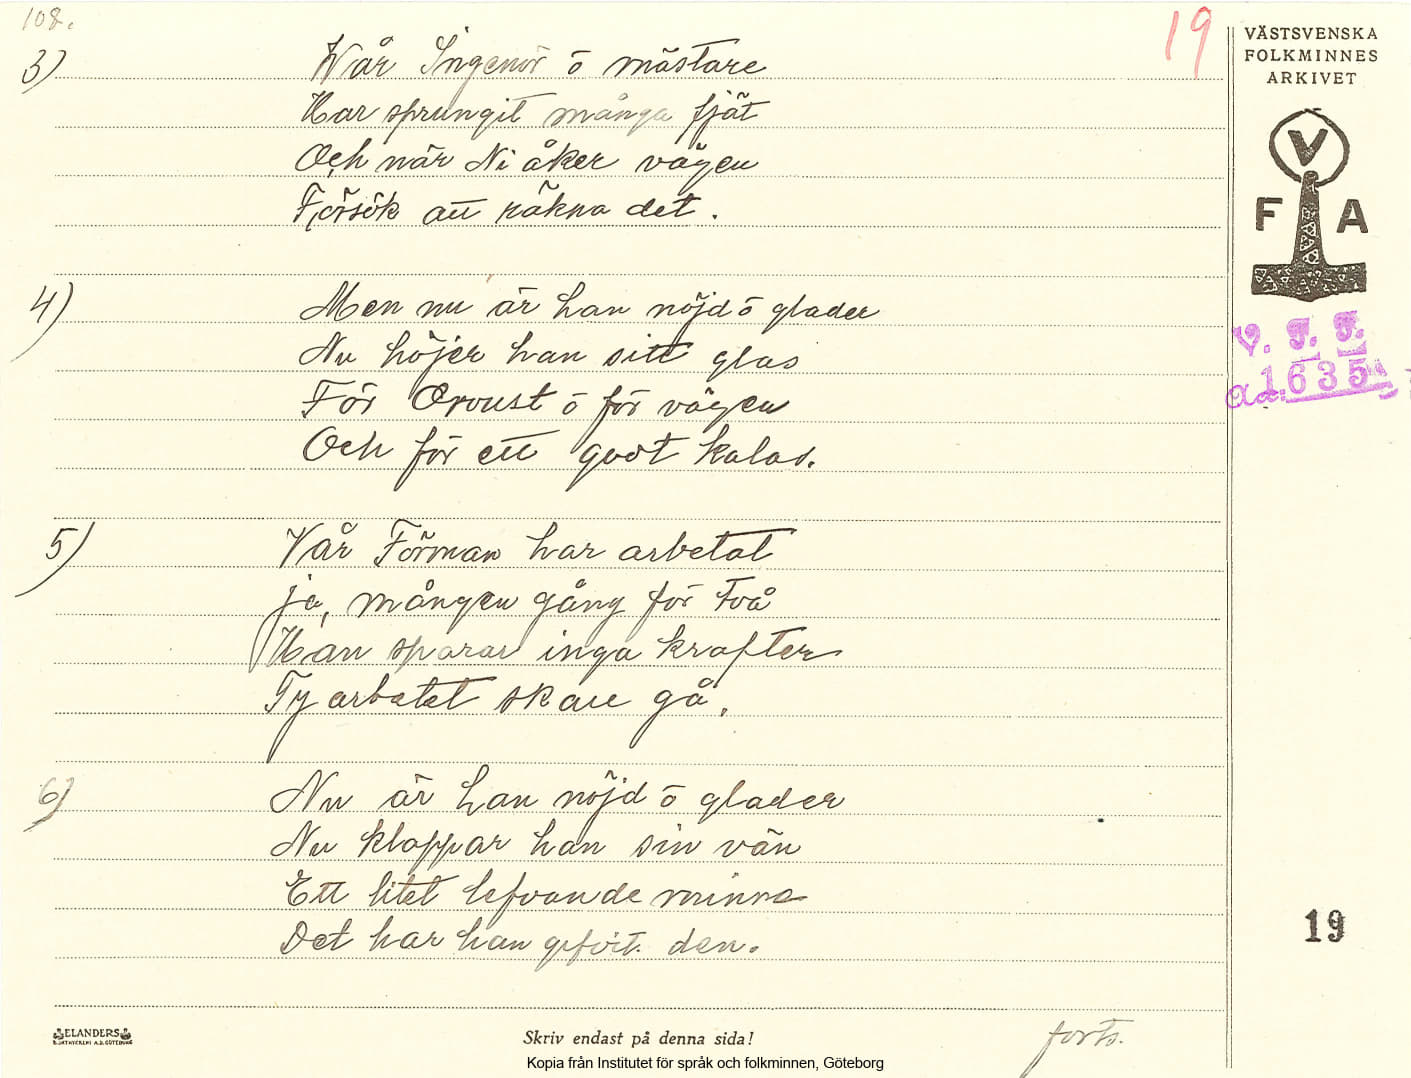 108.
19
VÄSTSVENSKA
FOLKMINNES
ARKIVET
V
F A
V. F. F.
Acc. 1635
3) Wår Ingeniör ō mästare
Har sprungit många fjät
Och när Ni åker vägen
Försök att räkna det.
4) Men nu är han nöjd ō glader
Nu höjer han sitt glas
För Oroust ō för vägen
Och för ett godt kalas.
5) Vår Förman har arbetat
ja, mången gång för två
Han sparar inga krafter
Ty arbetet skall gå.
6) Nu är han nöjd ō glader
Nu klappar han sin vän
Ett litet lefvande minne
Det har han gifvit den.
19
forts.
ELANDERS
BOKTRYCKERI A.B. GÖTEBORG
Skriv endast på denna sida!
Kopia från Institutet för språk och folkminnen, Göteborg